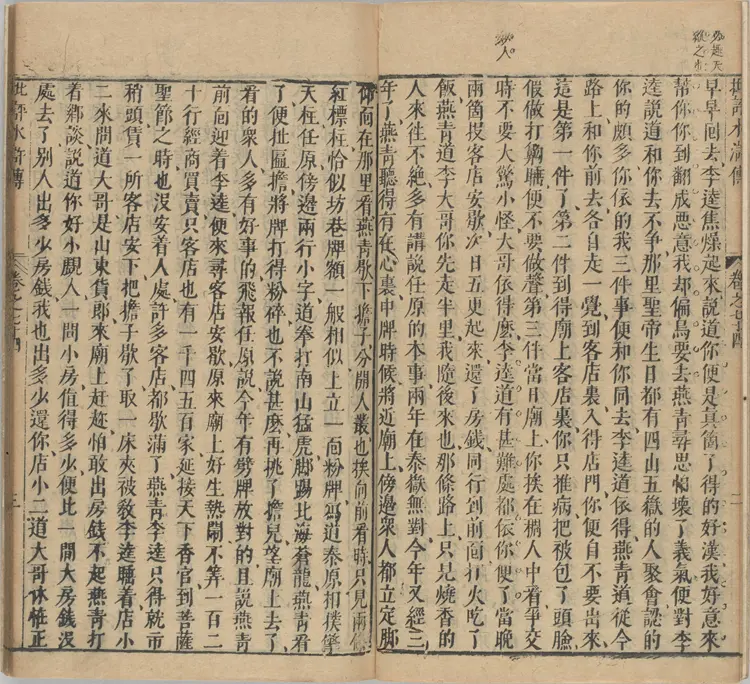 批評水滸傳 卷之七十四 二
早早囘去李逵焦燥起來說道你便是真箇了得的好漢我好意來
幫你你到翻成惡意我却偏鳥要去燕青尋思怕壞了義氣便對李
逵說道和你去不爭那里聖帝生日都有四山五嶽的人聚會認的
你的頗多你依的我三件事便和你同去李逵道依得燕青道從今
路上和你前去各自走一覺到客店裏入得店門你便自不要出來
這是第一件了第二件到得廟上客店裏你只推病把被包了頭臉
假做打齁睡便不要做聲第三件當日廟上你挨在稠人中看爭交
妙人
時不要大驚小怪大哥依得麼李逵道有甚難處都依你便了當晚
兩箇投客店安歇次日五更起來還了房錢同行到前面打火吃了
飯燕青道李大哥你先走半里我隨後來也那條路上只見燒香的
人來往不絕多有講說任原的本事兩年在泰嶽無對今年又經三
年了燕青聽得有在心裏申牌時候將近廟上傍邊衆人都立定脚
仰面在那里看燕青歇下擔子分開人叢也挨向前看時只見兩條
紅標柱恰似坊巷牌額一般相似上立一面粉牌寫道泰原相撲擎
天柱任原傍邊兩行小字道拳打南山猛虎脚踢北海蒼龍燕青看
了便扯匾擔將牌打得粉碎也不說甚麼再挑了擔兒望廟上去了
看的衆人多有好事的飛報任原說今年有劈牌放對的且說燕青
前面迎着李逵便來尋客店安歇原來廟上好生熱鬧不筭一百二
十行經商買賣只客店也有一千四五百家延接天下香官到菩薩
聖節之時也沒安着人處許多客店都歇滿了燕青李逵只得就市
稍頭賃一所客店安下把擔子歇了取一床夾被敎李逵睡着店小
二來問道大哥是山東貨郎來廟上赶趂怕敢出房錢不起燕青打
着鄉談說道你好小覷人一間小房值得多少便比一間大房錢沒
處去了別人出多少房錢我也出多少還你店小二道大哥休怪正
批評水滸傳 卷之七十四 三